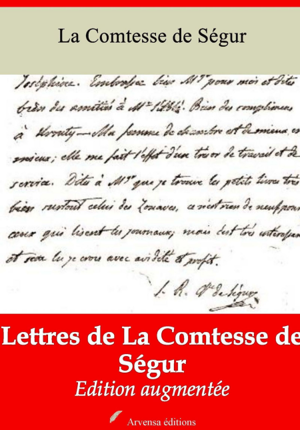 La Comtesse de Ségur
Joséphine. Embrassez bien Mr pour moi et dites
bien des amitiés à Mr Bien des compliments
à Ma femme de chambre est de mieux en
mieux; elle me fait l'effet d'un trésor de travail et de
service. Dites à Mr que je trouve les petits livres très
bien surtout celui des Zouaves, ce n'est rien de neuf pour
ceux qui lisent les journaux, mais c'est très intéressant
et sera lu je crois avec avidité et profit.
S. R. Ctesse de Ségur
Lettres de La Comtesse de
Ségur
Edition augmentée
Arvensa éditions